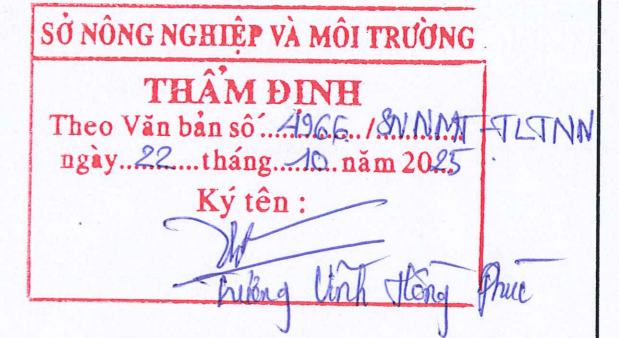 SỞ NÔNG NGHIỆP VÀ MÔI TRƯỜNG
THẨM ĐỊNH
Theo Văn bản số 4966 /SNNMT-TLTNN
ngày 22 tháng 10 năm 2025
Ký tên :
Trương Vĩnh Hồng Phúc